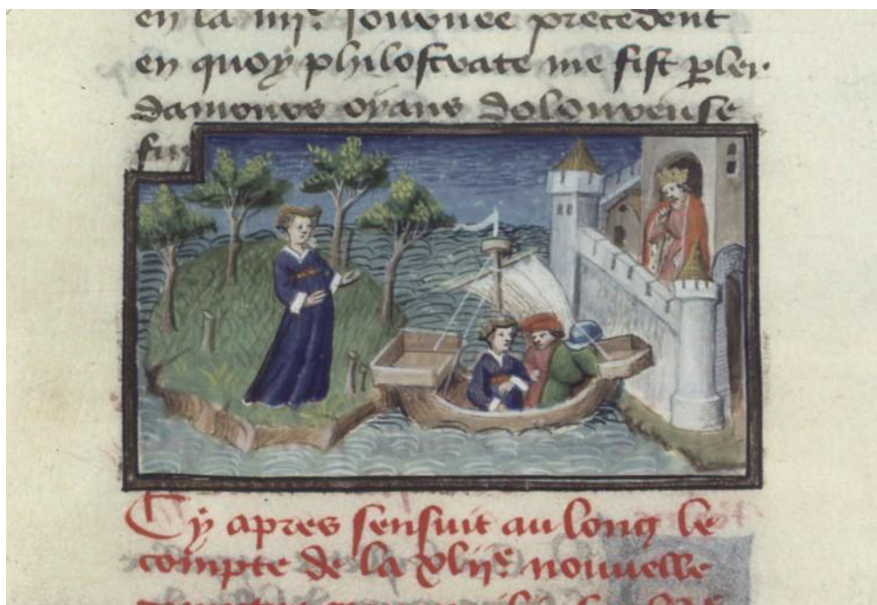 en la iiijᵉ Journee precedent
en quoy philostrate me fist p̱ler
damours oyans doloureuse
fin
Cy apres sensuit au long le
compte de la xlijᵉ nouvelle